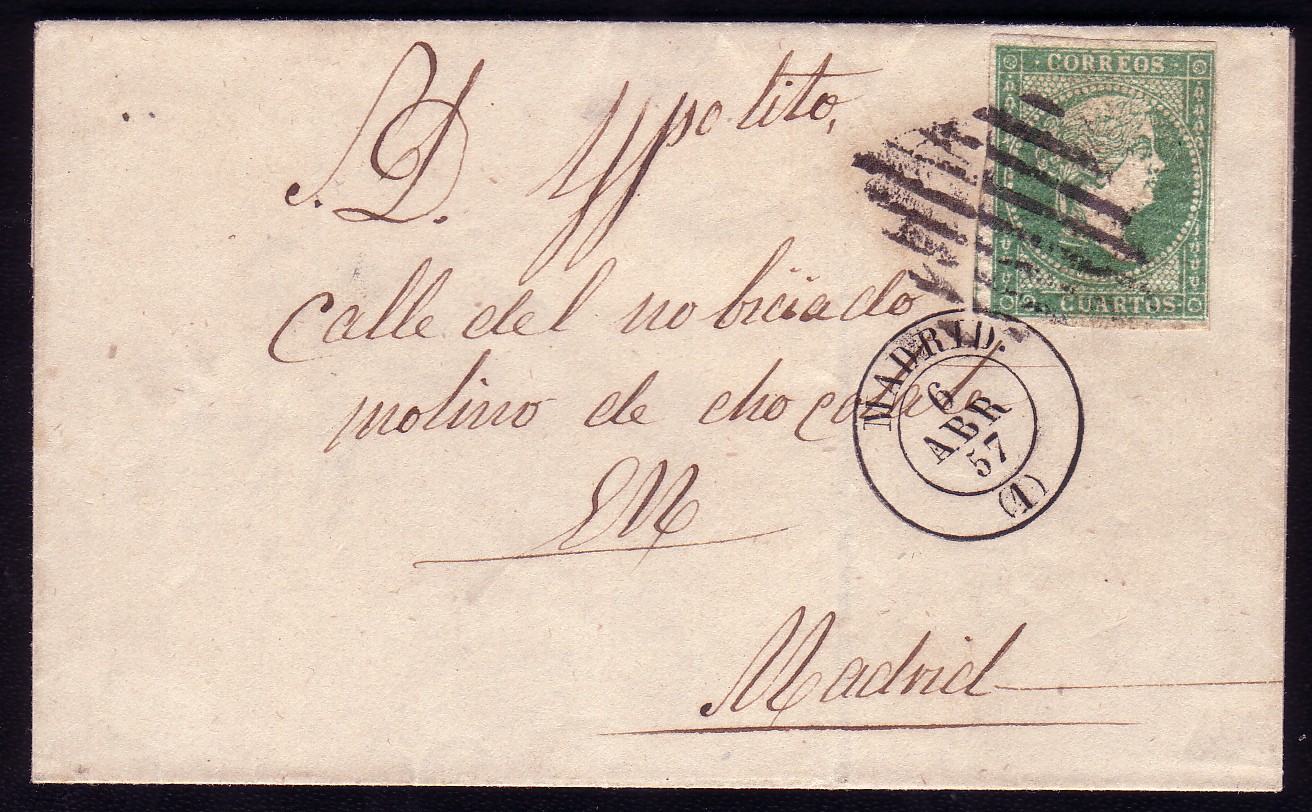 S. D. Yppolito,
calle del nobiciado
molino de chocolate
EM
Madrid
· CORREOS ·
CUARTOS
MADRID.
6
ABR
57
(1)